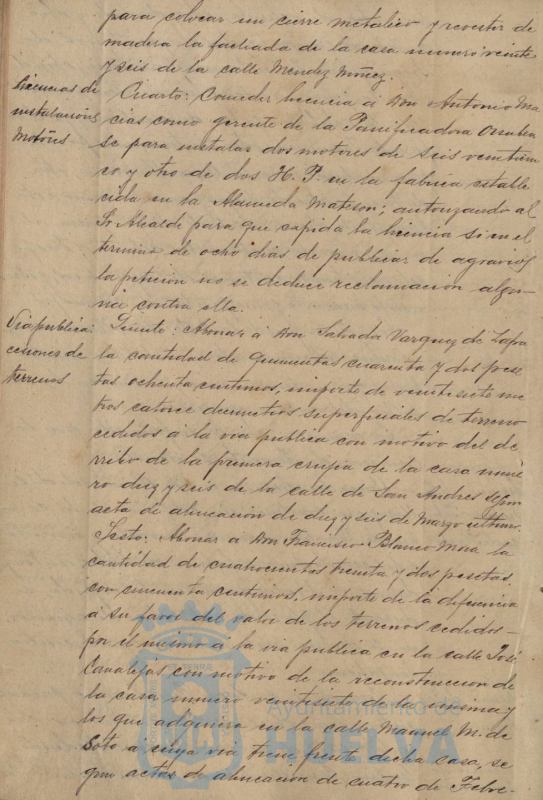 para colocar un cierre metalico y revestir de
madera la fachada de la casa numero veinte
y seis de la calle Mendez Nuñez.
Licencias de
instalacion
Motores
Cuarto: Conceder licencia á Don Antonio Ma
cias como gerente de la Panificadora Onuben
se para instalar dos motores de seis
y otro de dos H. P. en la fabrica estable
cida en la Alameda; autorizando al
Sr Alcalde para que expida la licencia si en el
termino de ocho dias de publicar de agravios
la peticion no se deduce reclamacion algu-
na contra ella.
Via publica:
cesiones de
terrenos
Abonar á Don Salvador Vazquez de Zafra
la cantidad de quinientas cuarenta y dos pese
tas ochenta centimos, importe de veintisiete me
tros catorce decimetros superficiales de terreno
cedidos á la via publica con motivo del de
rribo de la primera crujia de la casa nume
ro diez y seis de la calle de San Andres segun
acta de alineacion de diez y seis de Marzo ultimo.
Sesto: Abonar a Don Francisco Blanco Mora la
cantidad de cuatrocientas treinta y dos pesetas,
con cincuenta centimos, importe de la diferencia
á su favor del valor de los terrenos cedidos
por el mismo á la via publica en la calle José
Canalejas con motivo de la reconstruccion de
la casa numero veintisiete de la misma y
los que adquiere en la calle Manuel M. de
Soto á cuya via tiene frente dicha casa, se
gun actas de alineacion de cuatro de Febre-
Ayuntamiento de
HUELVA